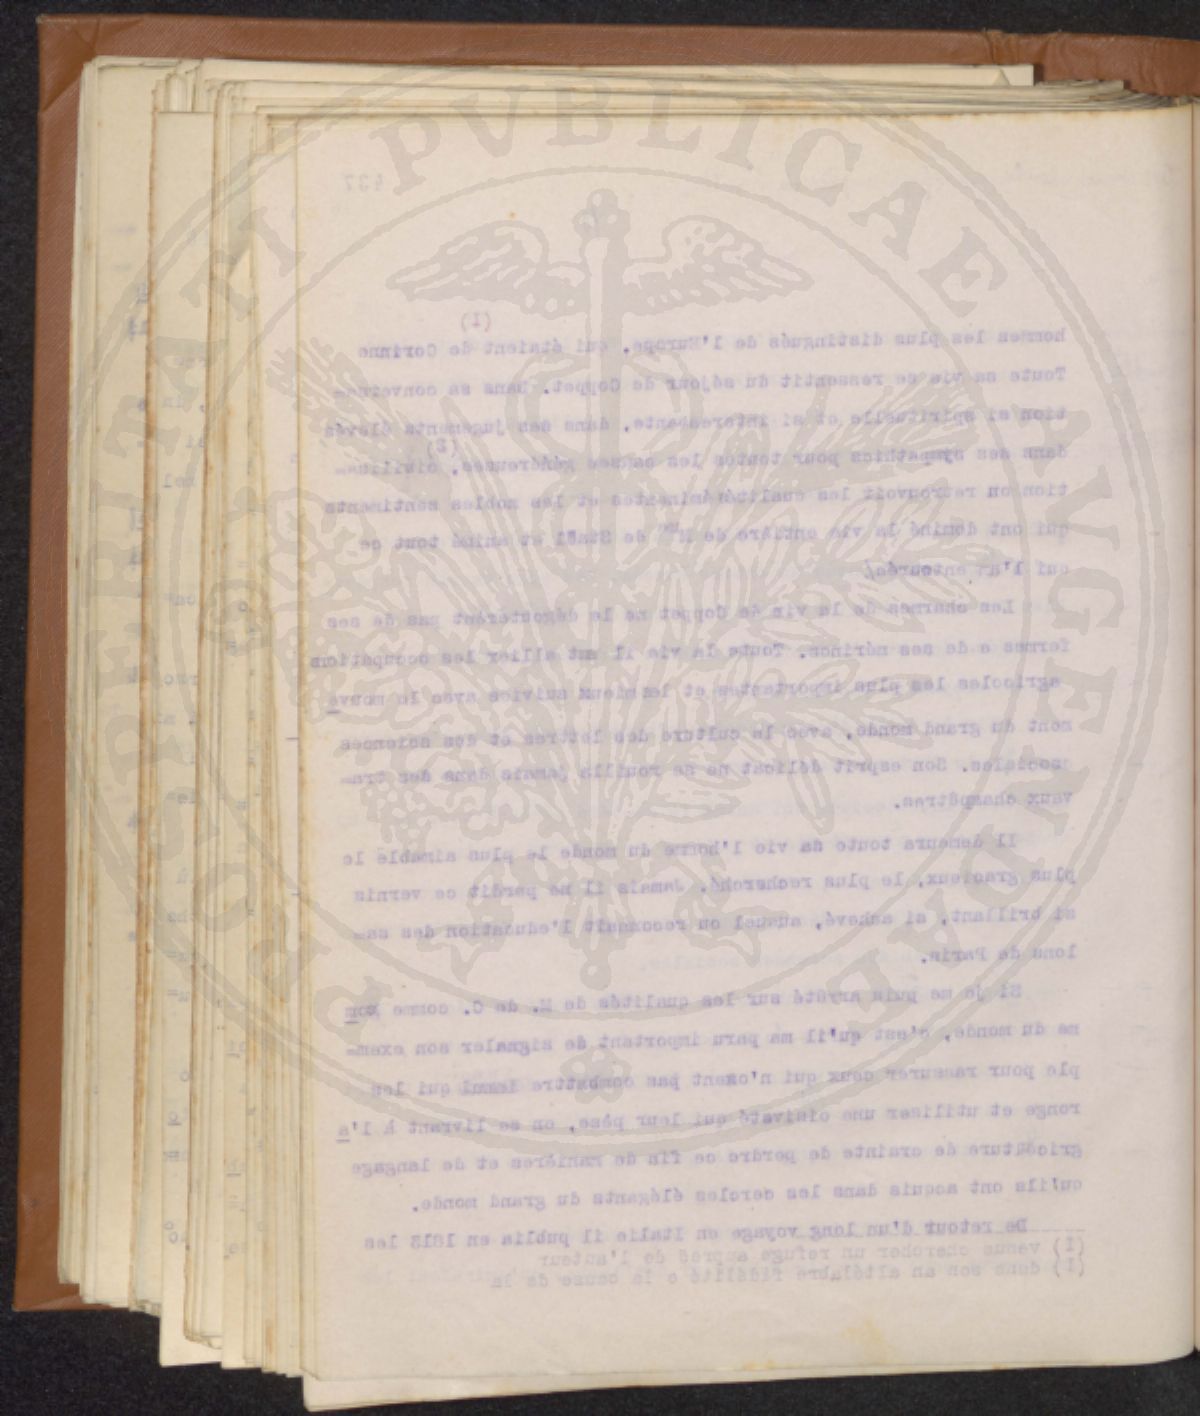 437
(I)
hommes les plus distingués de l'Europe, qui étaient de Corinne
Toute sa vie se ressentit du séjour de Coppet. Dans sa conversa=
tion si spirituelle et si interessante, dans ses jugements élevés
(2)
dans ses sympathies pour toutes les causes généreuses, civilisa=
tion on retrouvoit les qualités éminentes et les nobles sentiments
qui ont dominé la vie entière de Mme de Staël et animé tout ce
qui l'a entourés/
Les charmes de la vie de Coppet ne le dégoutèrent pas de ses
fermes e de ses mérinos. Toute la vie il sut allier les occupations
agricoles les plus importantes et les mieux suivies avec le mouve
ment du grand monde, avec la culture des lettres et des sciences
sociales. Son esprit délicat ne se rouilla jamais dans des tra=
vaux champêtres.
Il demeura toute sa vie l'homme du monde le plus aimable le
plus gracieux, le plus recherché. Jamais il ne perdit ce vernis
si brillant, si achevé, auquel on reconnait l'education des sa=
lons de Paris.
Si je me suis arrêté sur les qualités de M. de C. comme hom
me du monde, c'est qu'il ma paru important de signaler son exem=
ple pour rassurer ceux qui n'osent pas combattre qui les
ronge et utiliser une oisiveté qui leur pèse, en se livrant à l'a
griculture de crainte de perdre ce fin de manières et de langage
qu'ils ont acquis dans les cercles élégants du grand monde.
De retour d'un long voyage en Italie il publia en 1813 les
(I) venus chercher un refuge auprès de l'auteur
(I) dans son an altélabre fidélité e la cause de la
PROSPERITATI PVBLICAE AVGENDAE